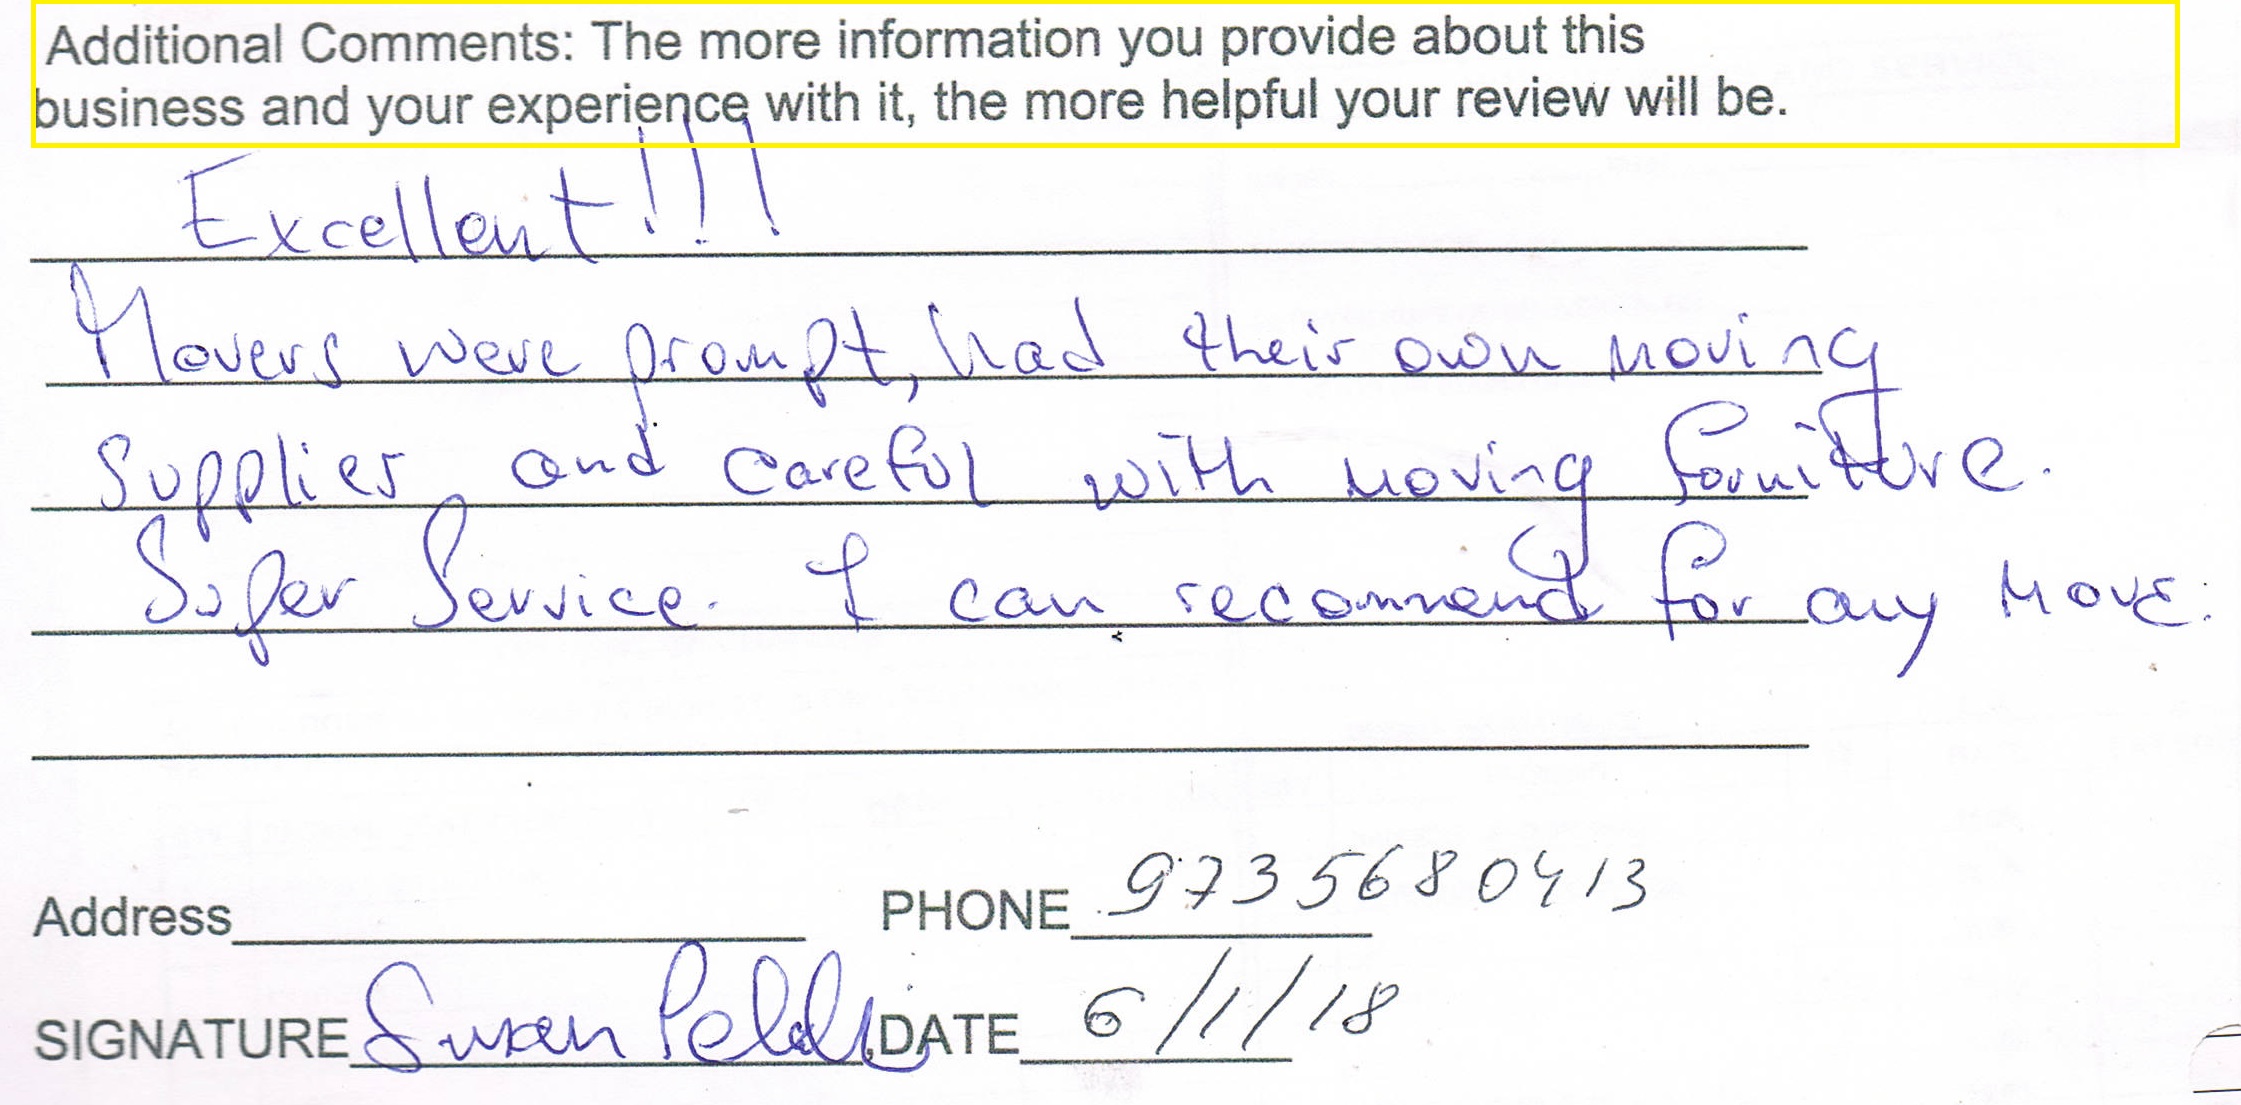 Additional Comments: The more information you provide about this
business and your experience with it, the more helpful your review will be.
Excellent!!!
Movers were prompt, had their own moving
supplies and careful with moving furniture.
Super Service. I can recommend for any move.
Address PHONE 9735680413
SIGNATURE Susan DATE 6/1/18